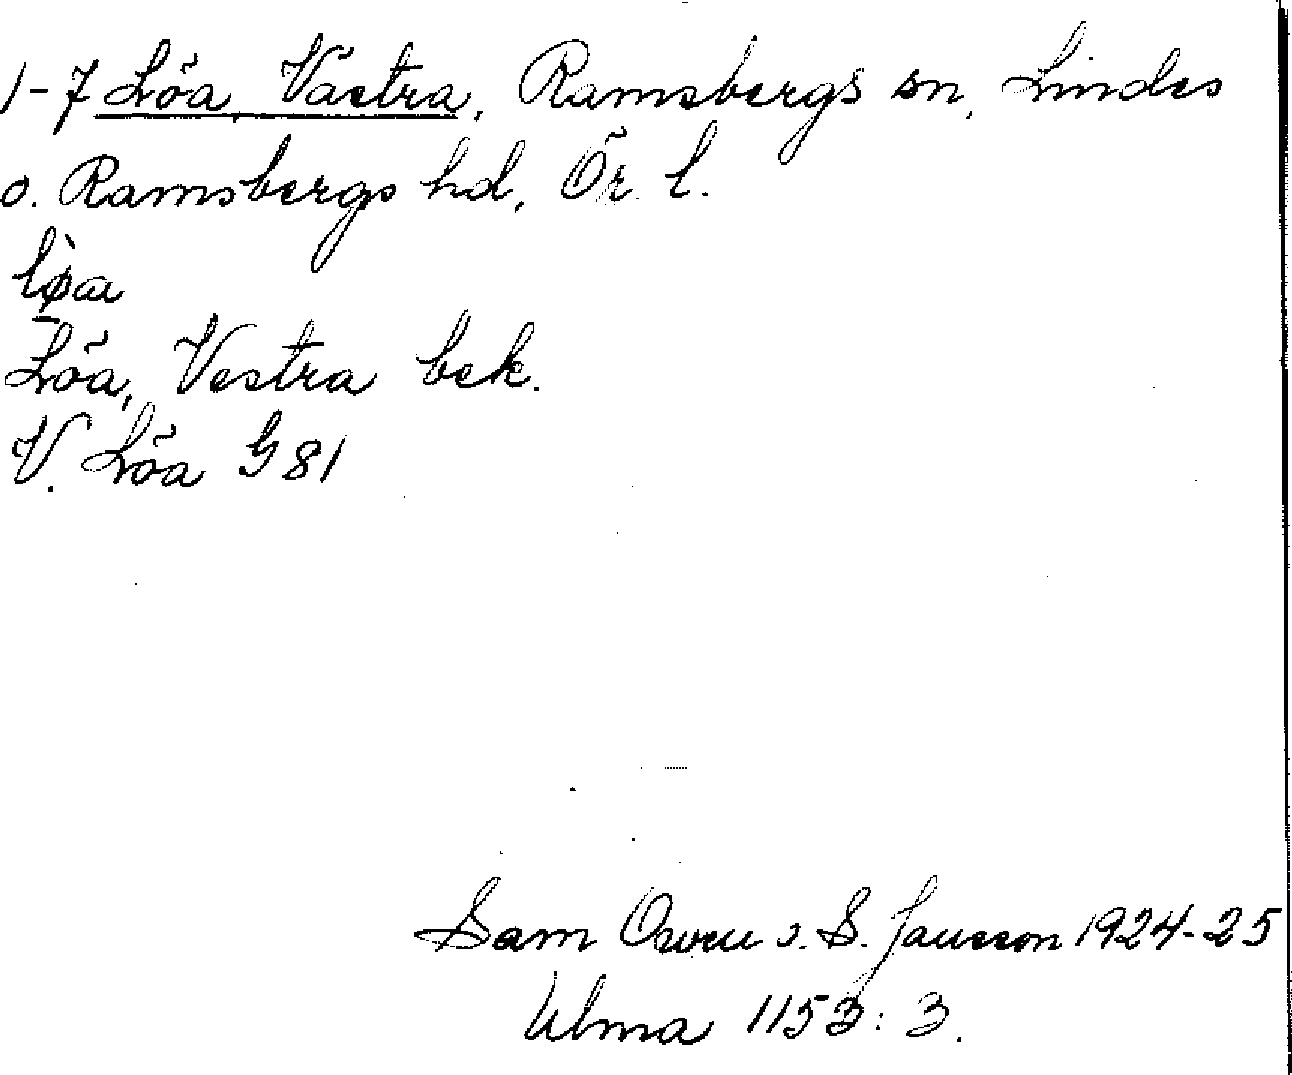 1-7 Löa, Västra, Ramsbergs sn, Lindes
o. Ramsbergs hd, Ör. l.
lø̀a
Löa, Vestra bek.
V. Löa G 81
Sam Owen o. S. Jansson 1924-25
Ulma 1153: 3.